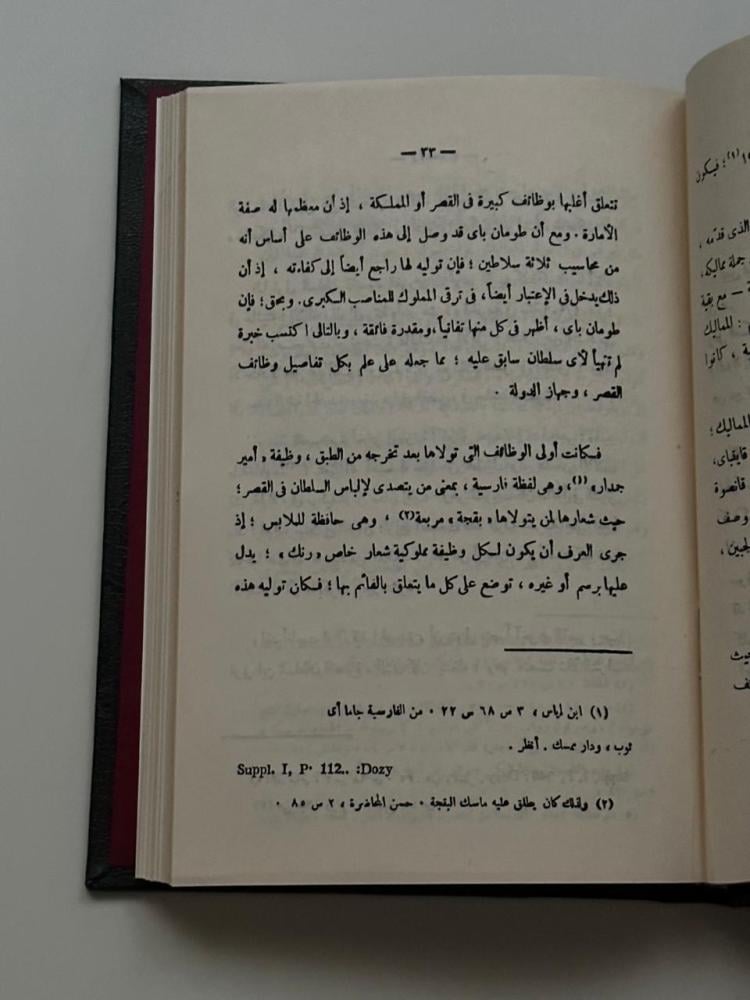 — ٣٣ —
تتعلق أغلبها بوظائف كبيرة فى القصر أو المملكة ، إذ أن معظمها له صفة
الأمارة . ومع أن طومان باى قد وصل إلى هذه الوظائف على أساس أنه
من محاسيب ثلاثة سلاطين ؛ فإن توليه لها راجع أيضاً إلى كفاءته ، إذ أن
ذلك يدخل فى الإعتبار أيضاً ، فى ترقى المملوك للمناصب الكبرى . وبحق ؛ فإن
طومان باى ، أظهر فى كل منها تفانياً ، ومقدرة فائقة ، وبالتالى اكتسب خبرة
لم تتهيأ لأى سلطان سابق عليه ؛ مما جعله على علم بكل تفاصيل وظائف
القصر ، وجهاز الدولة .
فكانت أولى الوظائف التى تولاها بعد تخرجه من الطبق ، وظيفة « أمير
جمدار » (١) ، وهى لفظة فارسية ، بمعنى من يتصدى لإلباس السلطان فى القصر ؛
حيث شعارها لمن يتولاها « بقجة » مربعة (٢) ، وهى حافظة للملابس ؛ إذ
جرى العرف أن يكون لكل وظيفة مملوكية شعار خاص « رنك » ؛ يدل
عليها برسم أو غيره ، توضع على كل ما يتعلق بالقائم بها ؛ فكان توليه هذه
(١) ابن اياس ، ٣ ص ٦٨ س ٢٢ . من الفارسية جاما أى
ثوب ، ودار ممسك . أنظر .
Suppl. I, P. 112.. :Dozy
(٢) ولذلك كان يطلق عليه ماسك البقجة . حسن المحاضرة ، ٢ ص ٨٥ .
(١) ؛ فيكون
الذى قدمه ،
جملة مماليكه ،
— مع بقية
: المماليك
، كانوا
المماليك ؛
قايتباى ،
قانصوة
وصف